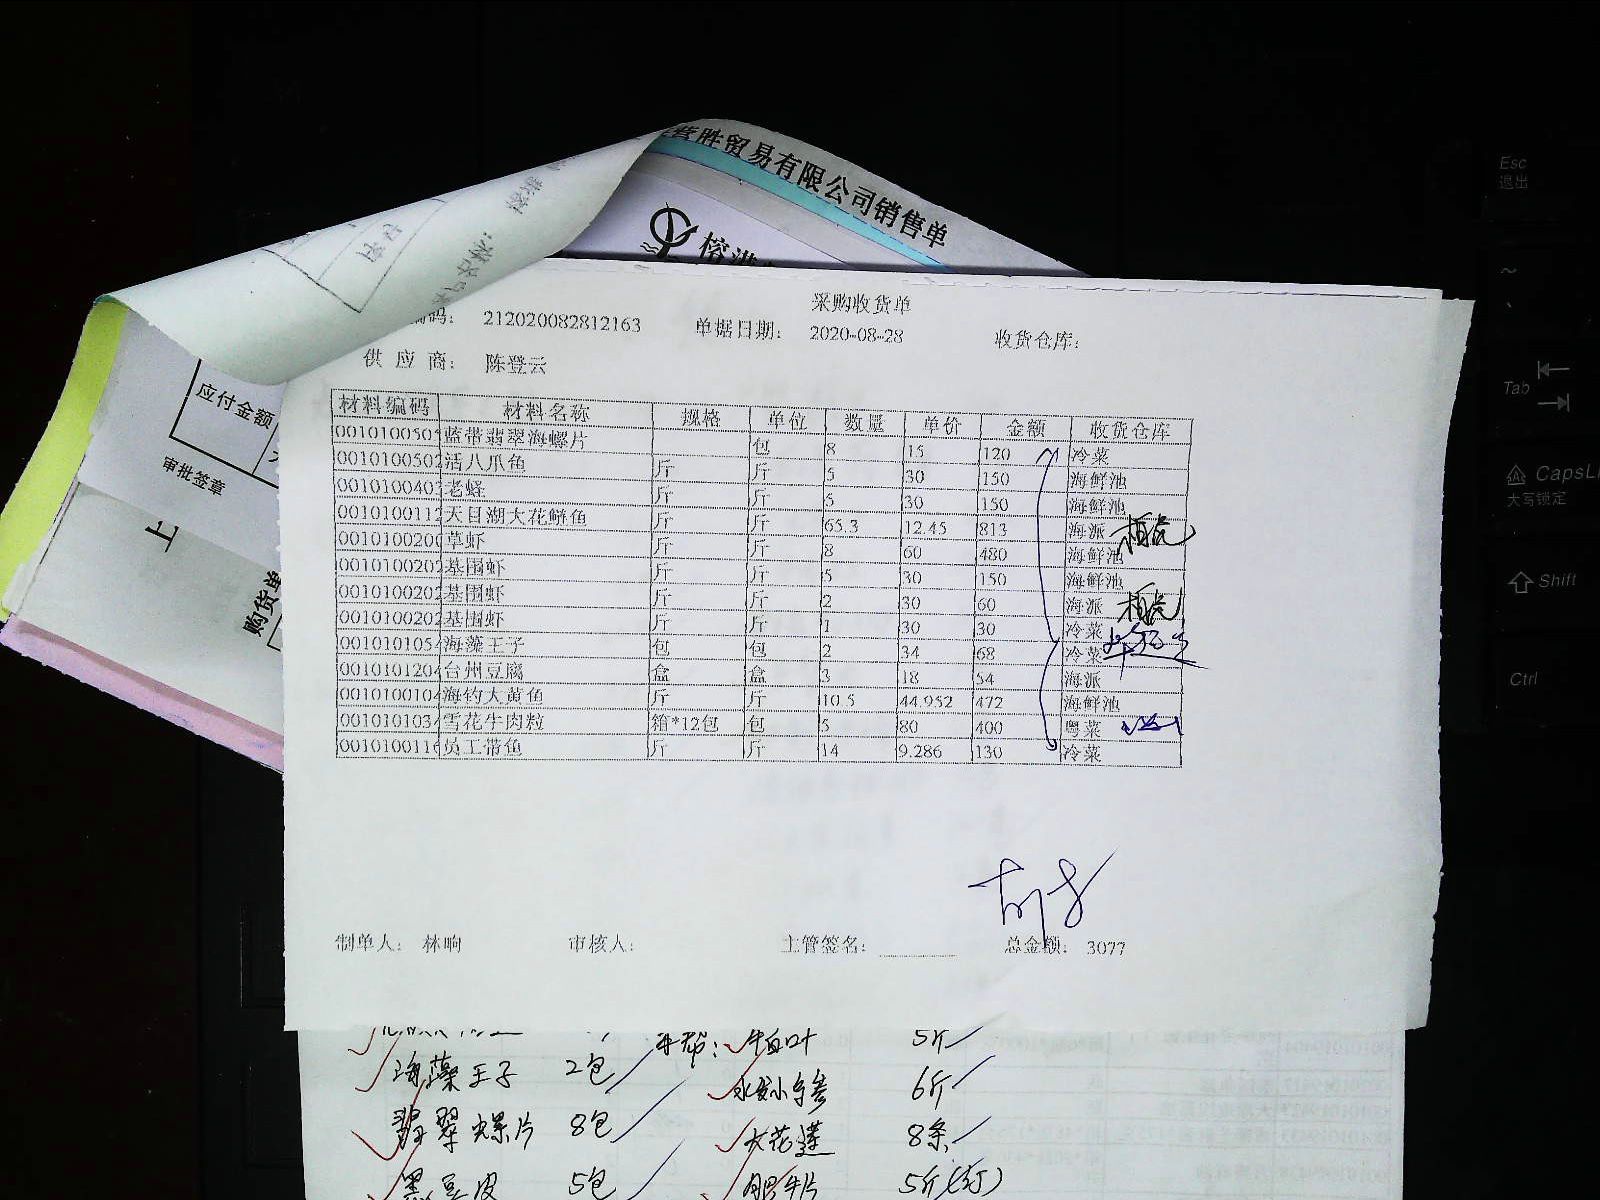 营胜贸易有限公司销售单
榕港
采购收货单
编码： 212020082812163 单据日期： 2020-08-28 收货仓库：
供 应 商： 陈登云
应付金额
审批签章
上
购货单
材料编码 材料名称 规格 单位 数量 单价 金额 收货仓库
0010100505 蓝带翡翠海螺片 包 8 15 120 冷菜
0010100502 活八爪鱼 斤 斤 5 30 150 海鲜池
0010100403 老蛏 斤 斤 5 30 150 海鲜池
0010100112 天目湖大花鲢鱼 斤 斤 65.3 12.45 813 海派
0010100200 草虾 斤 斤 8 60 480 海鲜池
0010100202 基围虾 斤 斤 5 30 150 海鲜池
0010100202 基围虾 斤 斤 2 30 60 海派
0010100202 基围虾 斤 斤 1 30 30 冷菜
0010101054 海藻王子 包 包 2 34 68 冷菜
0010101204 台州豆腐 盒 盒 3 18 54 海派
0010100104 海钓大黄鱼 斤 斤 10.5 44.952 472 海鲜池
0010101034 雪花牛肉粒 箱*12包 包 5 80 400 粤菜
0010100116 员工带鱼 斤 斤 14 9.286 130 冷菜
制单人： 林晌 审核人： 主管签名： 总金额： 3077
牛百叶 5斤
海藻王子 2包
水发小海参 6斤
翡翠螺片 8包
大花莲 8条
黑豆皮 5包
肥牛片 5斤
Esc
退出
~
Tab
CapsL
大写锁定
Shift
Ctrl